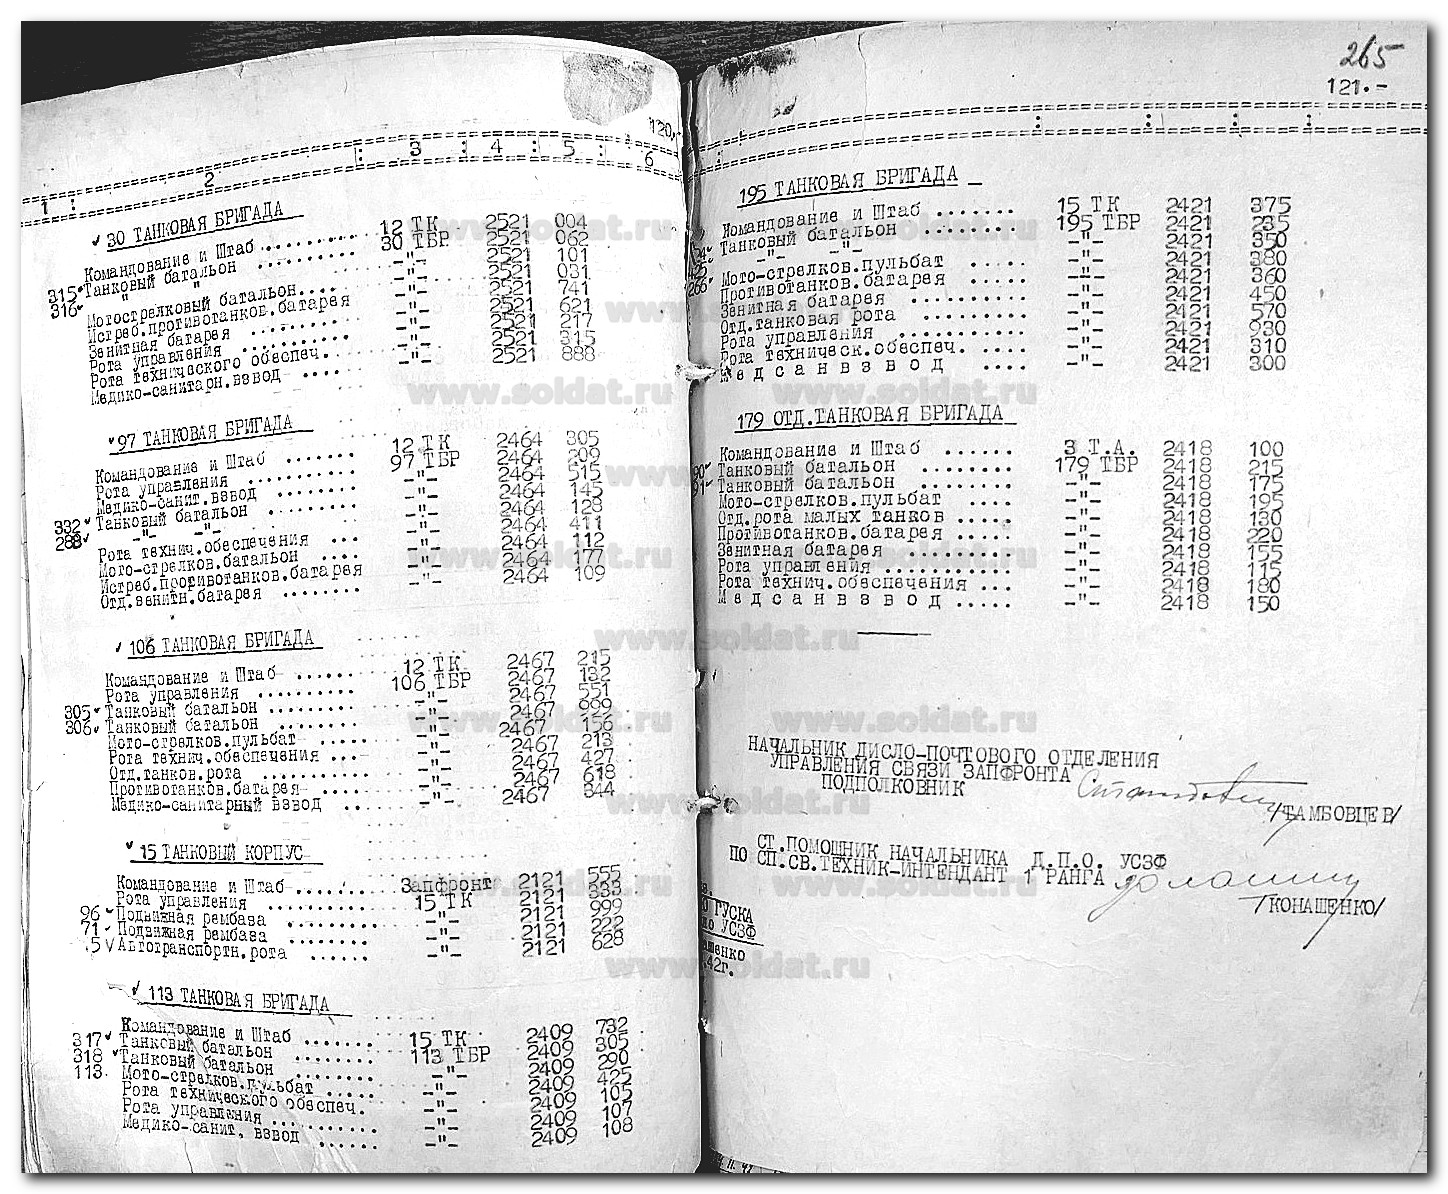 120.
1 : 2 : 3 : 4 : 5 : 6
30 ТАНКОВАЯ БРИГАДА
Командование и Штаб .......... 12 ТК 2521 004
315 Танковый батальон .......... 30 ТБР 2521 062
316 " " -"- 2521 101
Мотострелковый батальон.... -"- 2521 031
Истреб.противотанков.батарея -"- 2521 741
Зенитная батарея .......... -"- 2521 621
Рота управления .......... -"- 2521 217
Рота технического обеспеч. -"- 2521 315
Медико-санитарн.взвод .... -"- 2521 888
97 ТАНКОВАЯ БРИГАДА
Командование и Штаб ....... 12 ТК 2464 305
Рота управления ........ 97 ТБР 2464 209
Медико-санит.взвод ........ -"- 2464 515
332 Танковый батальон ......... -"- 2464 145
288 -"- -"- -"- 2464 128
Рота технич.обеспечения ... -"- 2464 411
Мото-стрелков.батальон .... -"- 2464 112
Истреб.противотанков.батарея -"- 2464 177
Отд.зенитн.батарея ........ -"- 2464 109
106 ТАНКОВАЯ БРИГАДА
Командование и Штаб ...... 12 ТК 2467 215
Рота управления .......... 106 ТБР 2467 132
305 Танковый батальон ......... -"- 2467 551
306 Танковый батальон ........ -"- 2467 999
Мото-стрелков.пульбат ..... -"- 2467 156
Рота технич.обеспечения ... -"- 2467 213
Отд.танков.рота .......... -"- 2467 427
Противотанков.батарея ..... -"- 2467 618
Медико-санитарный взвод .. -"- 2467 344
15 ТАНКОВЫЙ КОРПУС
Командование и Штаб ....... Запфронт 2121 555
Рота управления .......... 15 ТК 2121 333
96 Подвижная рембаза ......... -"- 2121 999
71 Подвижная рембаза ........ -"- 2121 222
5 Автотранспортн.рота ...... -"- 2121 628
113 ТАНКОВАЯ БРИГАДА
Командование и Штаб ....... 15 ТК 2409 732
317 Танковый батальон ........ 113 ТБР 2409 305
318 Танковый батальон ........ -"- 2409 290
113. Мото-стрелков.пульбат ..... -"- 2409 425
Рота технического обеспеч. -"- 2409 105
Рота управления ........... -"- 2409 107
Медико-санит. взвод ...... -"- 2409 108
265
121.-
195 ТАНКОВАЯ БРИГАДА
Командование и Штаб ....... 15 ТК 2421 375
Танковый батальон ........ 195 ТБР 2421 235
-"- -"- -"- 2421 350
Мото-стрелков.пульбат ..... -"- 2421 380
266 Противотанков.батарея ..... -"- 2421 360
Зенитная батарея ......... -"- 2421 450
Отд.танковая рота ........ -"- 2421 570
Рота управления .......... -"- 2421 930
Рота техническ.обеспеч. .... -"- 2421 310
Медсанвзвод .... -"- 2421 300
179 ОТД.ТАНКОВАЯ БРИГАДА
Командование и Штаб ...... 3 Т.А. 2418 100
90 Танковый батальон ........ 179 ТБР 2418 215
91 Танковый батальон ........ -"- 2418 175
Мото-стрелков.пульбат .... -"- 2418 195
Отд.рота малых танков ..... -"- 2418 130
Противотанков.батарея ..... -"- 2418 220
Зенитная батарея ......... -"- 2418 155
Рота управления ........... -"- 2418 115
Рота технич.обеспечения ... -"- 2418 180
Медсанвзвод ..... -"- 2418 150
НАЧАЛЬНИК ДИСЛО-ПОЧТОВОГО ОТДЕЛЕНИЯ
УПРАВЛЕНИЯ СВЯЗИ ЗАПФРОНТА
ПОДПОЛКОВНИК
/ТАМБОВЦЕВ/
СТ.ПОМОЩНИК НАЧАЛЬНИКА Д.П.О. УСЗФ
ПО СП.СВ.ТЕХНИК-ИНТЕНДАНТ 1 РАНГА
/КОНАШЕНКО/
УСЗФ
42г.
www.soldat.ru
www.soldat.ru
www.soldat.ru
www.soldat.ru
www.soldat.ru
www.soldat.ru
www.soldat.ru
www.soldat.ru
www.soldat.ru
www.soldat.ru
www.soldat.ru
www.soldat.ru
www.soldat.ru